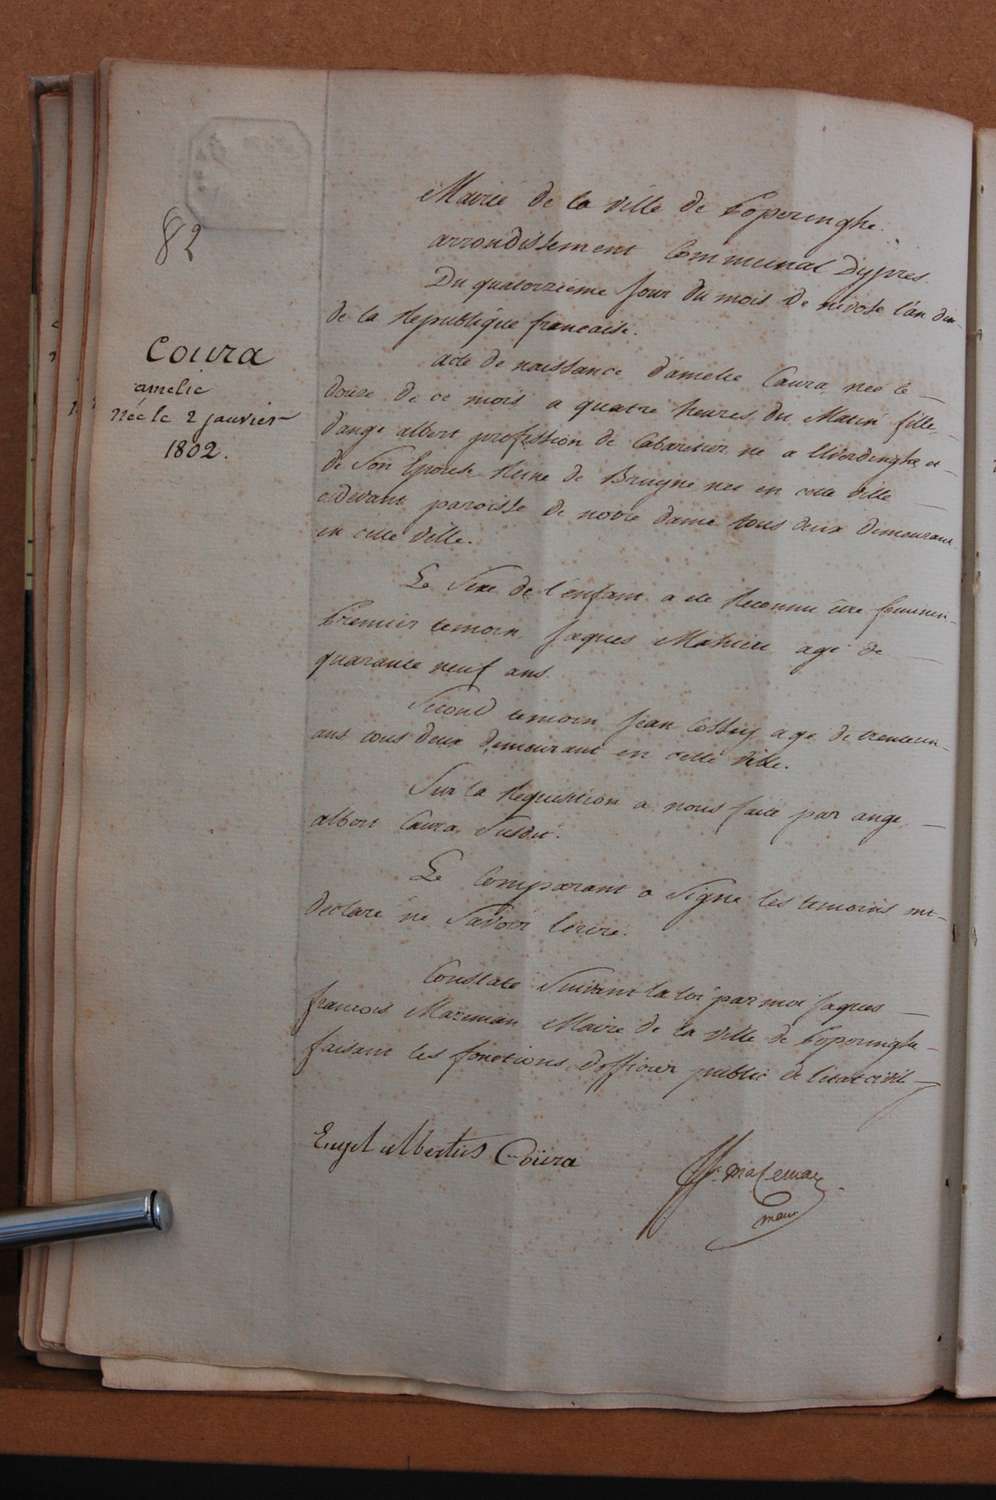 82
Coura
amelie
née le 2 janvier
1802.
Mairie de la ville de Poperinghe.
arrondissement Communal Dypres.
Du quatorzieme jour du mois de nivose l'an dix
de la Republique francaise.
acte de naissance d'amelie Caura née le
douze de ce mois a quatre heures du Matin fille
d'ange albert profession de Cabaretier né a Elverdinghe et
de Son Epouse Reine de Bruyne née en cette ville
cidevant paroisse de notre dame tous deux demourant
en cette ville.
Le Sexe de l'enfant a ete Reconnu être feminin
Premier temoin Jaques Mahieu agé de
quarante neuf ans.
Second temoin Jean age de trente un
ans tous deux demourant en cette ville.
Sur la Requisition a nous faite par ange
albert Caura Susdit.
Le Comparant a Signe les temoins ont
declaré ne Savoir Ecrire.
Constaté Suivant la loi par moi Jaques
francois Mazeman Maire de la ville de Poperinghe
faisant les fonctions d'officier public de l'etat civil
Engel albertus Coura
J f. Mazeman
maire